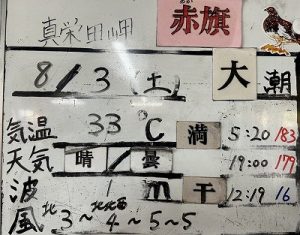 あか
真栄田岬 赤旗
8/3(土) 大潮
気温 33℃ 満 5:20 183
天気 晴/曇 19:00 179
波 1m 干 12:19 16
風 北 3~ 北北西 4~5~5